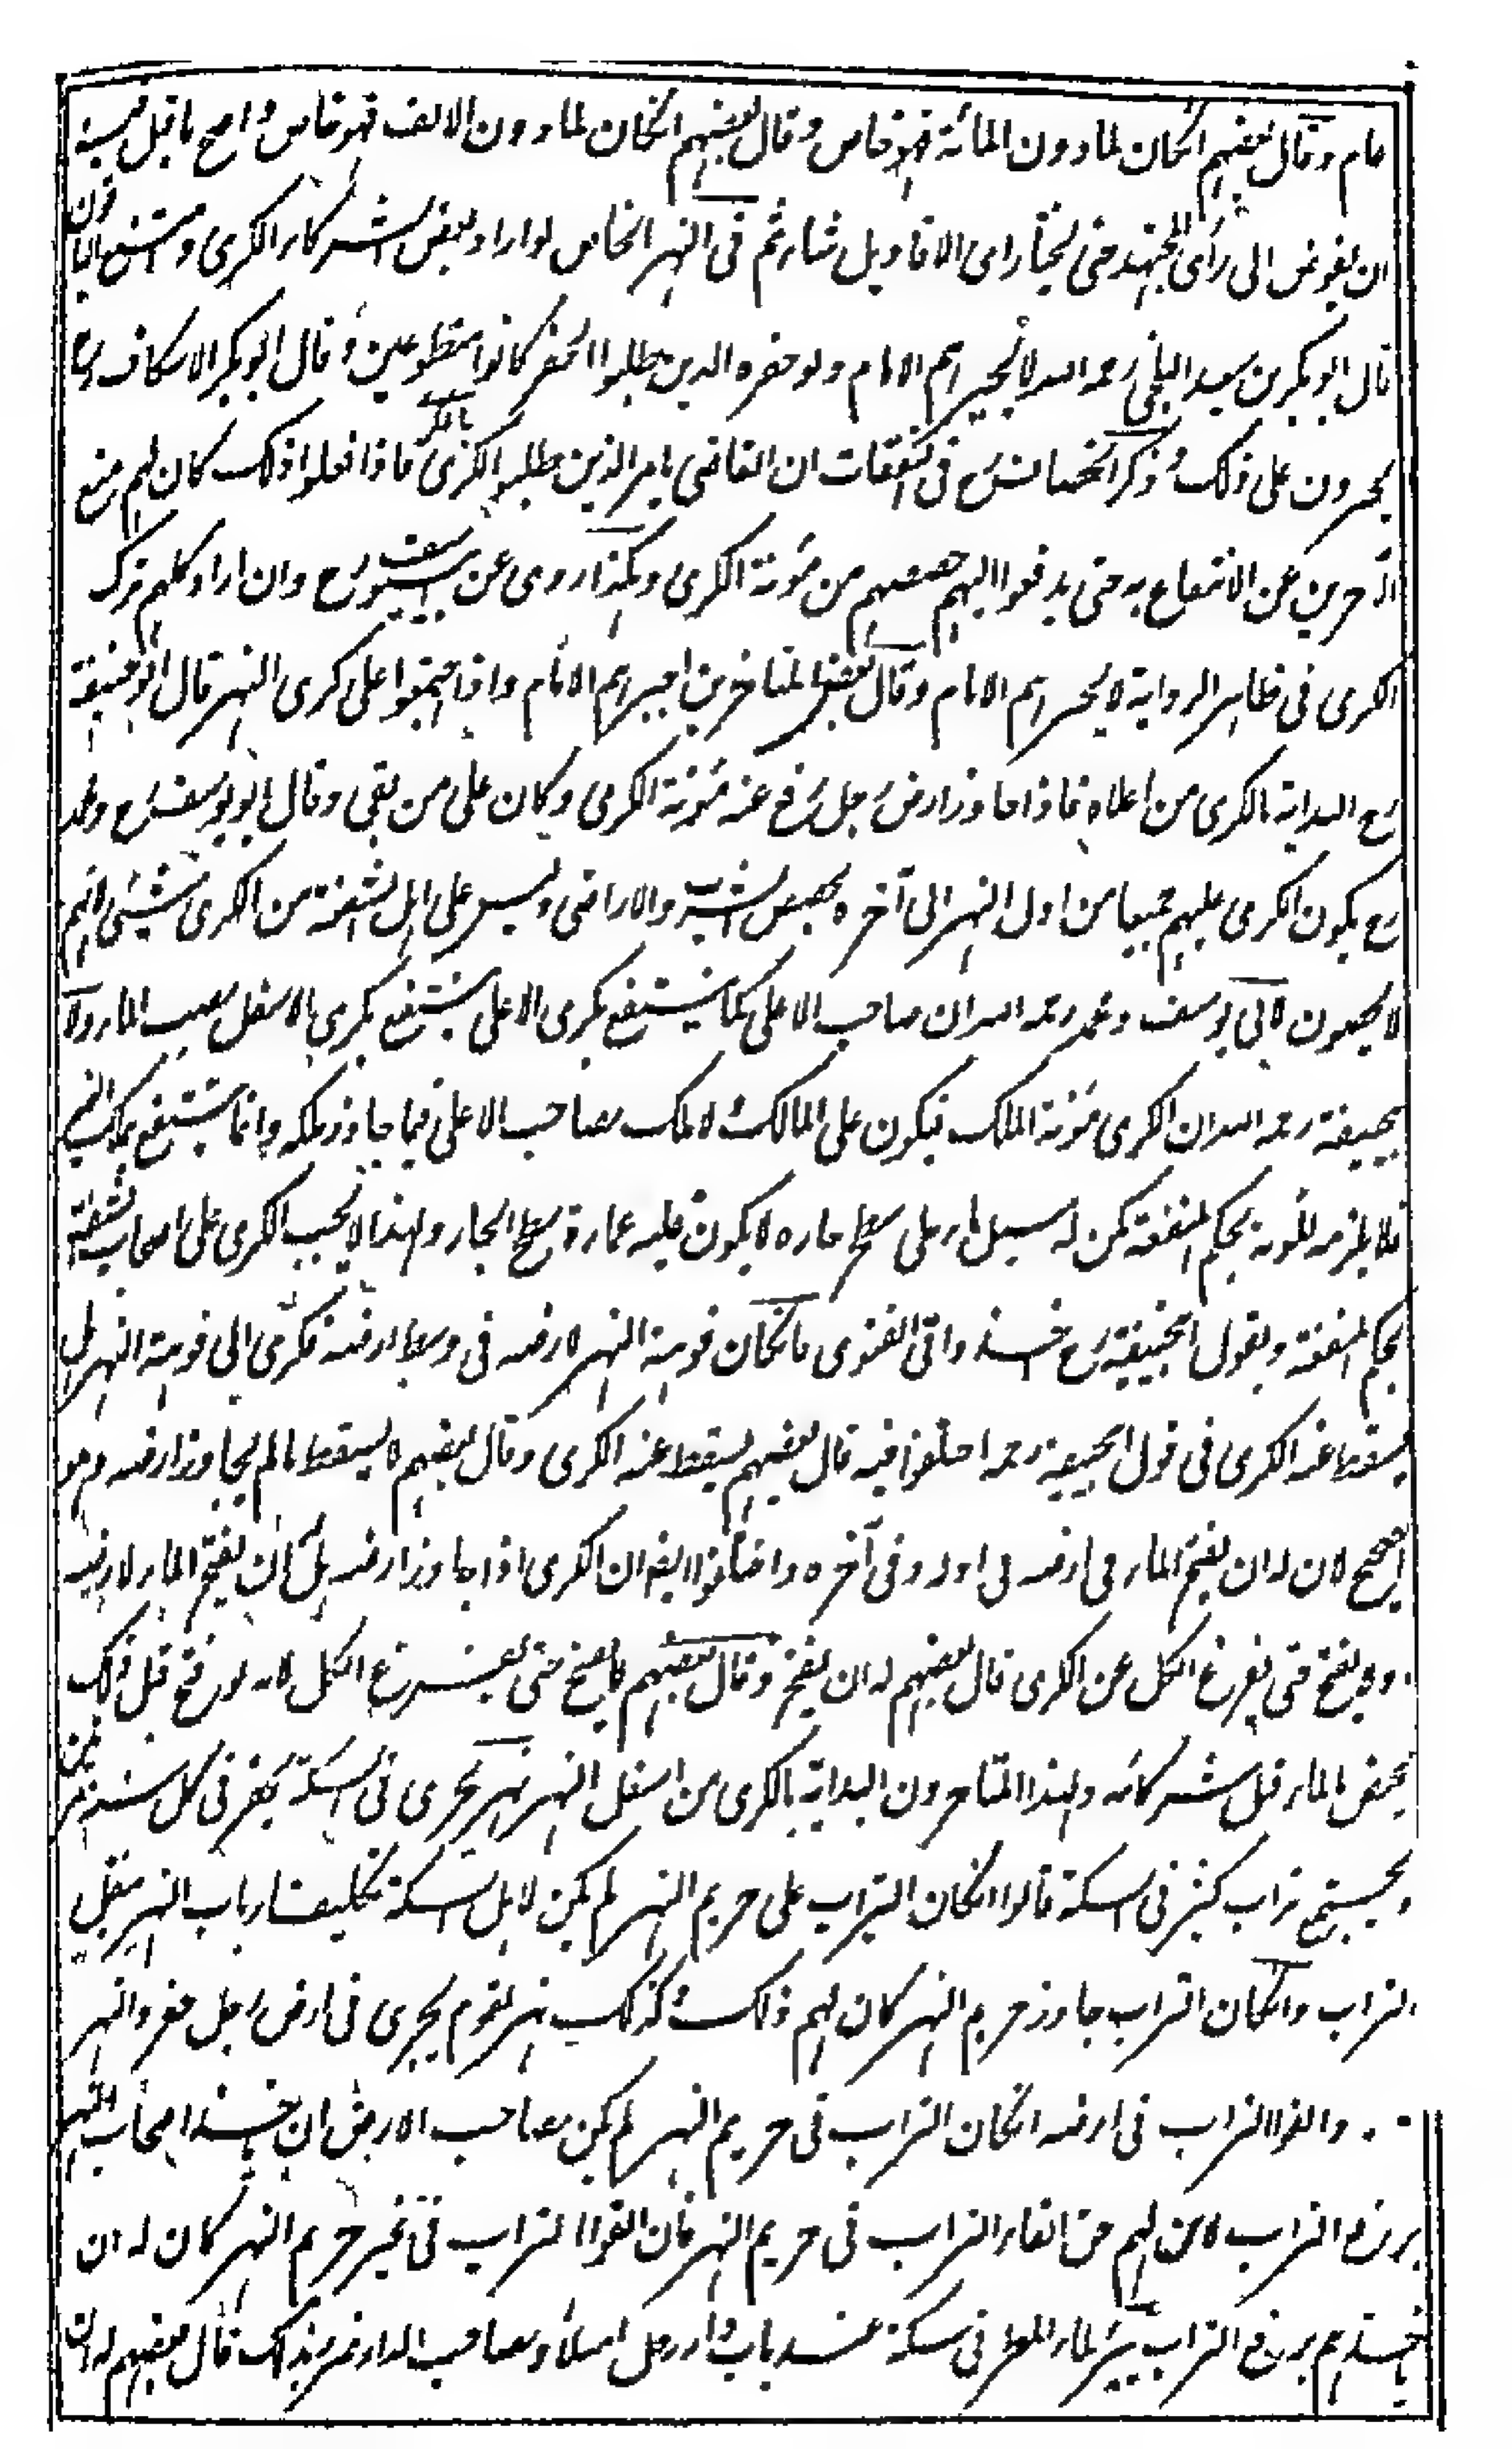 عام وقال بعضهم انكان لما دون المائة فهو خاص وقال بعضهم انكان لما دون الالف فهو خاص واصح ما قيل فيه
ان يفوض الى رأى المجتهد حتى يختار اى الاقاويل شاء ثم فى النهر الخاص لو اراد بعض الشركاء الكرى وامتنع الباقون
قال ابو بكر بن سعيد البلخى رحمه الله لا يجبرهم الامام ولو حفره الذين طلبوا الحفر كانوا متطوعين وقال ابو بكر الاسكاف رح
يجبرون على ذلك وذكر الخصاف رح فى النفقات ان القاضى يامر الذين طلبوا الكرى بالكرى فاذا فعلوا ذلك كان لهم منع
الآخرين عن الانتفاع به حتى يدفعوا اليهم حصصهم من مؤنة الكرى وهكذا روى عن ابى يوسف رح وان اراد كلهم ترك
الكرى فى ظاهر الرواية لا يجبرهم الامام وقال بعض المتاخرين يجبرهم الامام واذا اجتمعوا على كرى النهر قال ابو حنيفة
رح البداية بالكرى من اعلاه فاذا جاوز ارض رجل رفع عنه مؤنة الكرى وكان على من بقى وقال ابو يوسف رح ومحمد
رح يكون الكرى عليهم جميعا من اول النهر الى آخره بحصص الشرب والاراضى وليس على اهل الشفة من الكرى شيئ انهم
لا يحصون لابى يوسف ومحمد رحمه الله ان صاحب الاعلى كما ينتفع بكرى الاعلى ينتفع بكرى الاسفل بصب الماء ولا
بيحنيفة رحمه الله ان الكرى مؤنة الملك فيكون على المالك لا ملك لصاحب الاعلى فيما جاوز ملكه وانما ينتفع بملك الغير
فلا يلزمه المؤنة بحكم المنفعة كمن له مسيل ماء على سطح جاره لا يكون عليه عمارة سطح الجار ولهذا لا يجب الكرى على اصحاب الشفة
بحكم المنفعة وبقول ابيحنيفة رح اخذوا فى الفتوى فانكان فوهة النهر لارضه فى وسط ارضه فكرى الى فوهة النهر هل
يسقط عنه الكرى فى قول ابيحنيفة رحمه اختلفوا فيه قال بعضهم يسقط عنه الكرى وقال بعضهم لا يسقط ما لم يجاوز ارضه وهو
الصحيح لان له ان يفتح الماء فى ارضه فى اوله وفى آخره واختلفوا ايضا ان الكرى اذا جاوز ارضه هل له ان يفتح الماء لارضه
ولا يفتح حتى يفرغ الكل عن الكرى قال بعضهم له ان يفتح وقال بعضهم لا يفتح حتى يفرغ الكل لانه لو فتح قبل ذلك
يختص بالماء قبل شركائه ولهذا المتاخرون البداية بالكرى من اسفل النهر نهر يجرى فى السكة يحفر فى كل سنة مرتين
ويجتمع تراب كثير فى السكة قالوا انكان التراب على حريم النهر لم يكن لاهل السكة تكليف ارباب النهر نقل
التراب وانكان التراب جاوز حريم النهر كان لهم ذلك كذلك نهر لقوم يجرى فى ارض رجل حفروا النهر
والقوا التراب فى ارضه انكان التراب فى حريم النهر لم يكن لصاحب الارض ان ياخذ اصحاب النهر
برفع التراب لان لهم حق القاء التراب فى حريم النهر فان القوا التراب فى غير حريم النهر كان له ان
ياخذهم برفع التراب بئر لماء المطر فى سكة عند باب دار رجل امتلأ وصاحب الدار يتضرر بذلك قال بعضهم له ان